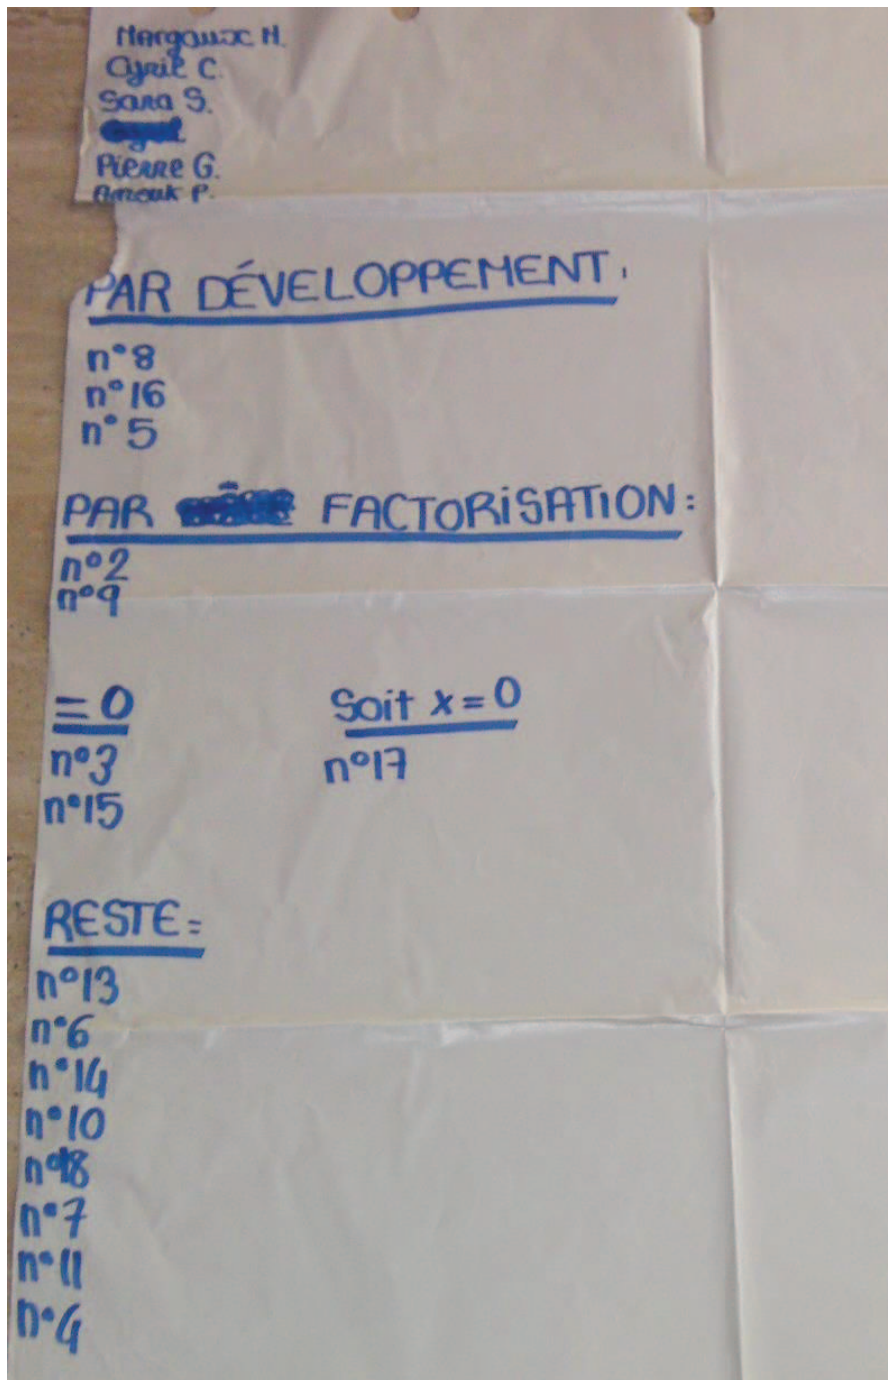 Margaux M.
Cyril C.
Sara S.
Pierre G.
Anouk P.
PAR DÉVELOPPEMENT:
n°8
n°16
n°5
PAR FACTORISATION:
n°2
n°9
= 0
n°3
n°15
Soit x = 0
n°17
RESTE:
n°13
n°6
n°14
n°10
n°18
n°7
n°11
n°4